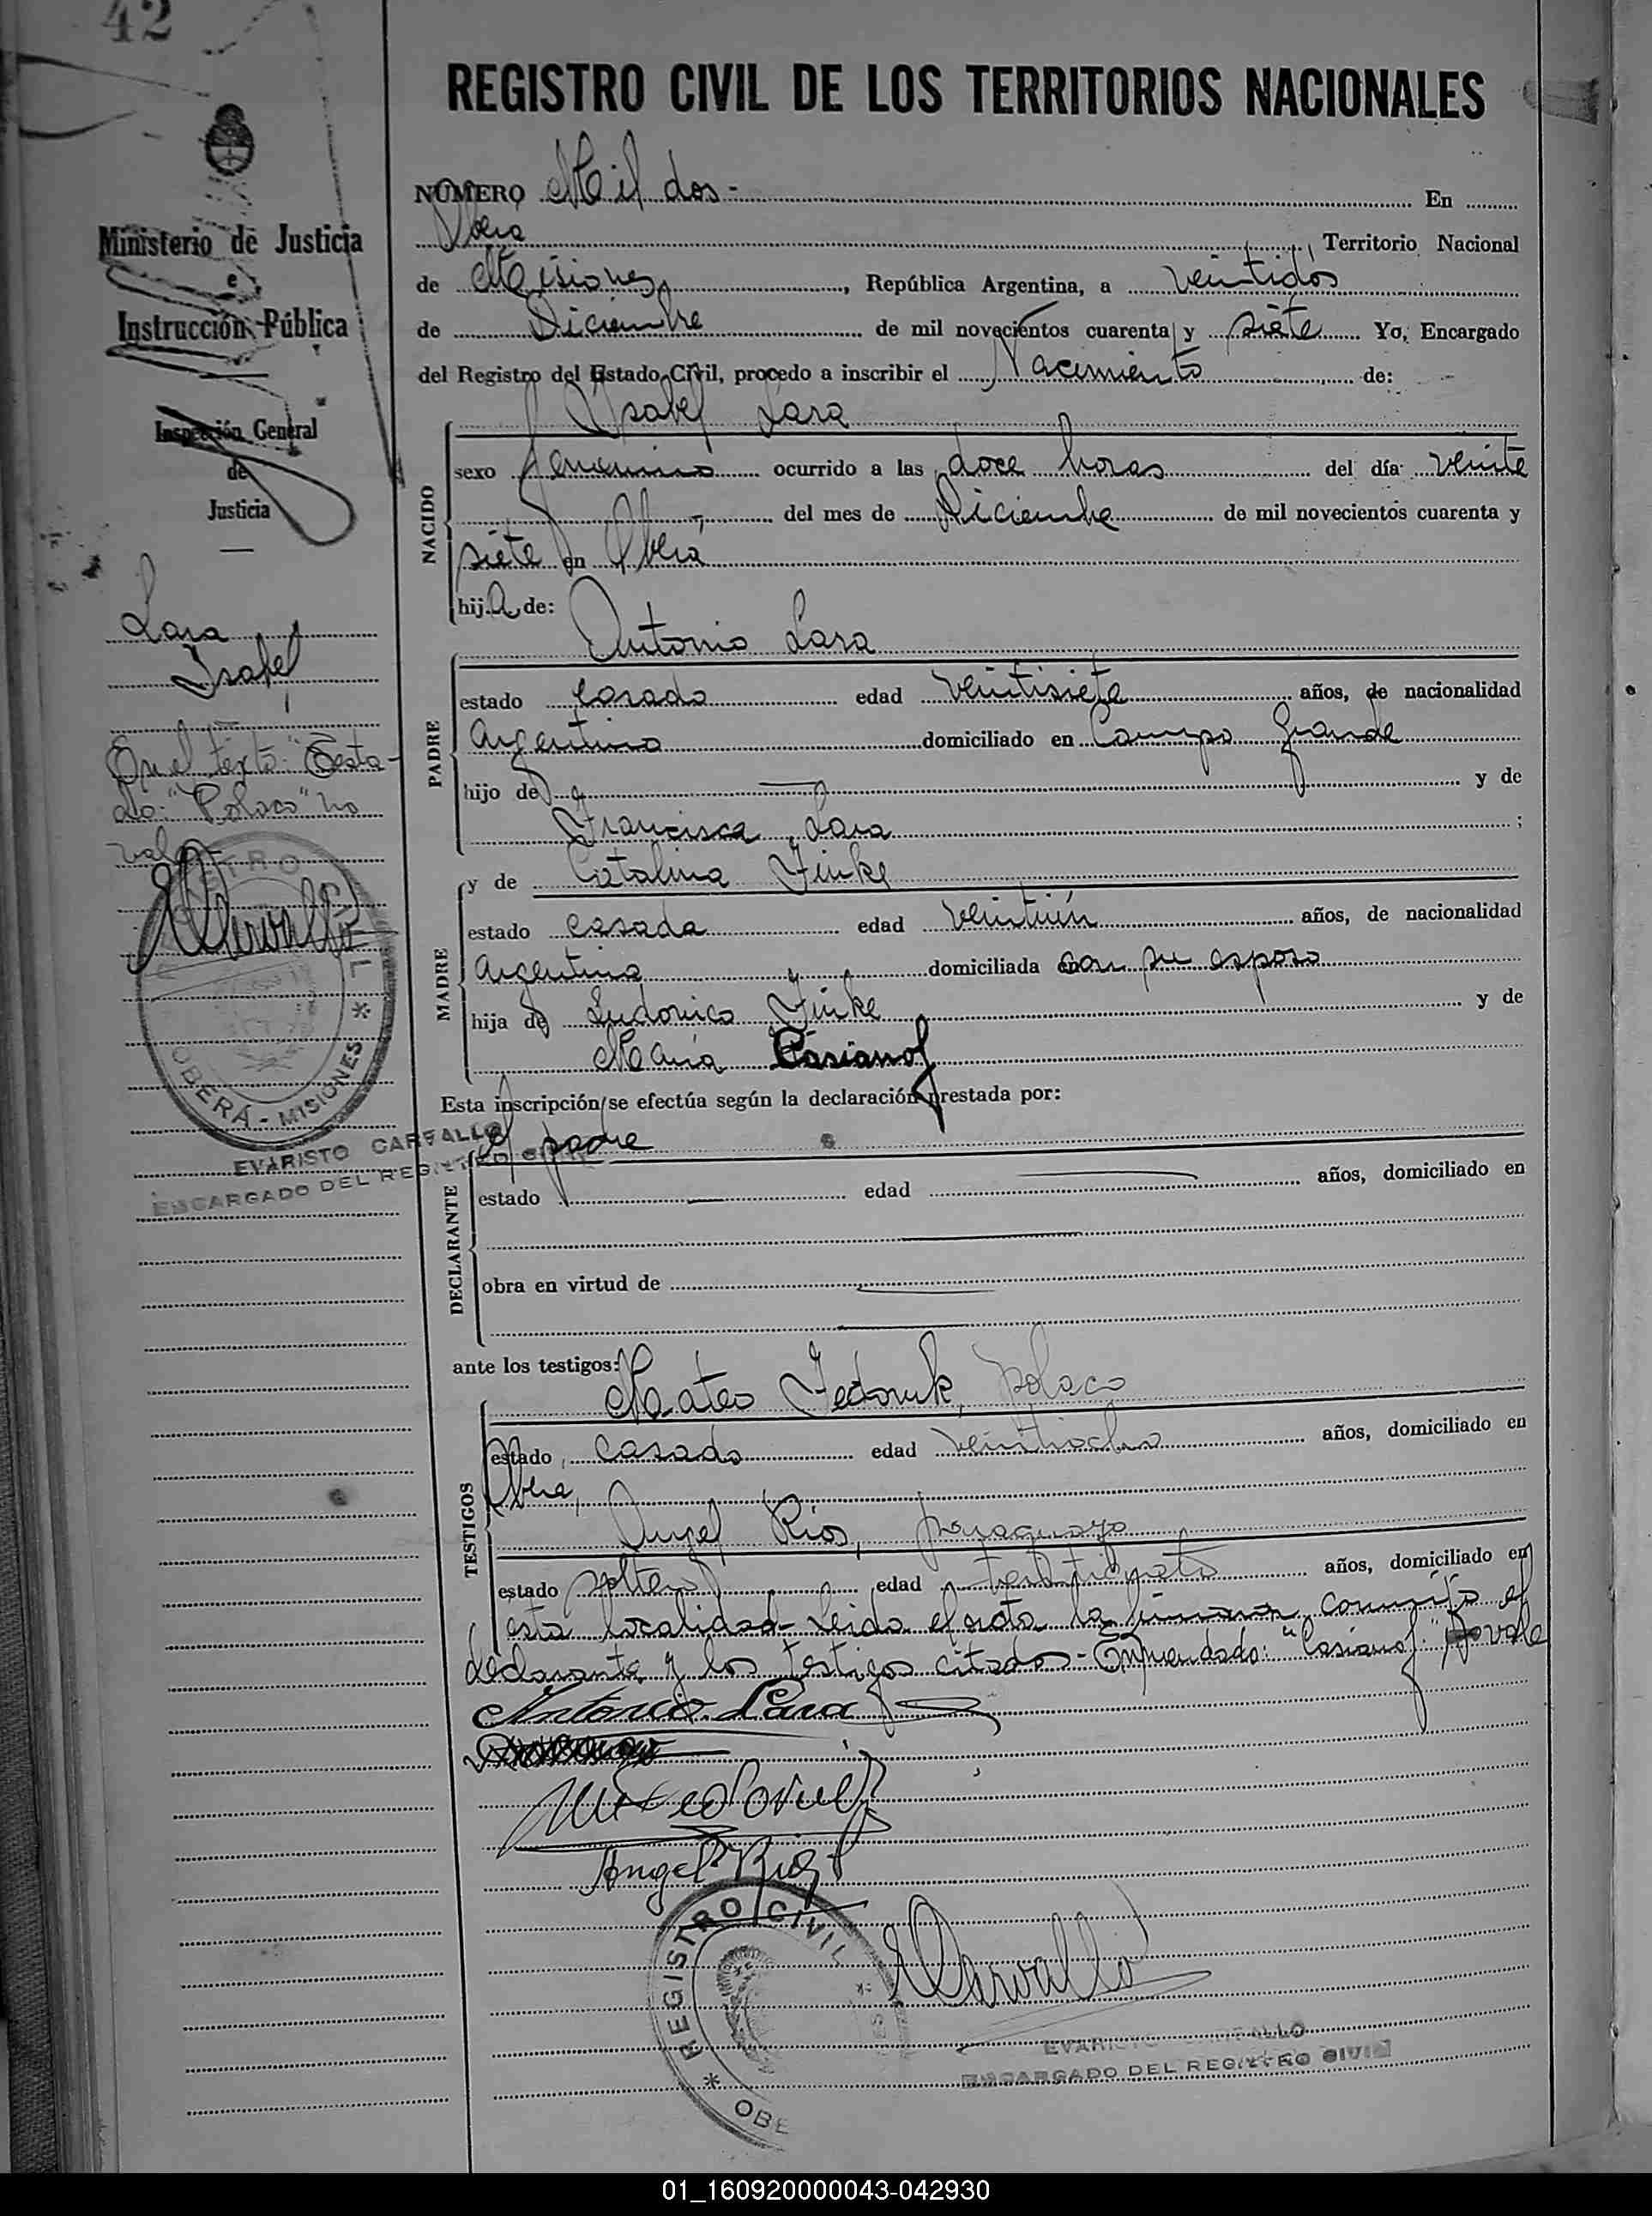 42
REGISTRO CIVIL DE LOS TERRITORIOS NACIONALES
Ministerio de Justicia
e
Instrucción Pública
Inspección General
de
Justicia
Lara
Isabel
En el texto: "Testa-
do: "Polaco" no
vale
REGISTRO CIVIL
OBERÁ - MISIONES
EVARISTO CARVALLO
ENCARGADO DEL REGISTRO CIVIL
NÚMERO Mil dos - En
Oberá, Territorio Nacional
de Misiones, República Argentina, a veintidós
de Diciembre de mil novecientos cuarenta y siete Yo, Encargado
del Registro del Estado Civil, procedo a inscribir el Nacimiento de:
Isabel Lara
NACIDO
sexo femenino ocurrido a las doce horas del día veinte
del mes de Diciembre de mil novecientos cuarenta y
siete en Oberá
hija de:
Antonio Lara
PADRE
estado casado edad veintisiete años, de nacionalidad
Argentino domiciliado en Campo Grande
hijo de y de
Francisca Lara;
y de Catalina Finke
MADRE
estado casada edad veintiún años, de nacionalidad
Argentina domiciliada con su esposo
hija de Ludovico Finke y de
María Casianof
Esta inscripción se efectúa según la declaración prestada por:
el padre
DECLARANTE
estado edad años, domiciliado en
obra en virtud de
ante los testigos:
Mateo Fedoruk, polaco
TESTIGOS
estado casado edad veintiocho años, domiciliado en
Oberá,
Angel Rios, paraguayo
estado soltero edad años, domiciliado en
esta localidad - Leida el acta la conmigo el
declarante y los testigos citados - Enmendado: "Casianof": vale
Antonio Lara
Angel Rios
REGISTRO CIVIL
OBE
ECarvallo
EVARISTO CARVALLO
ENCARGADO DEL REGISTRO CIVIL
01_160920000043-042930